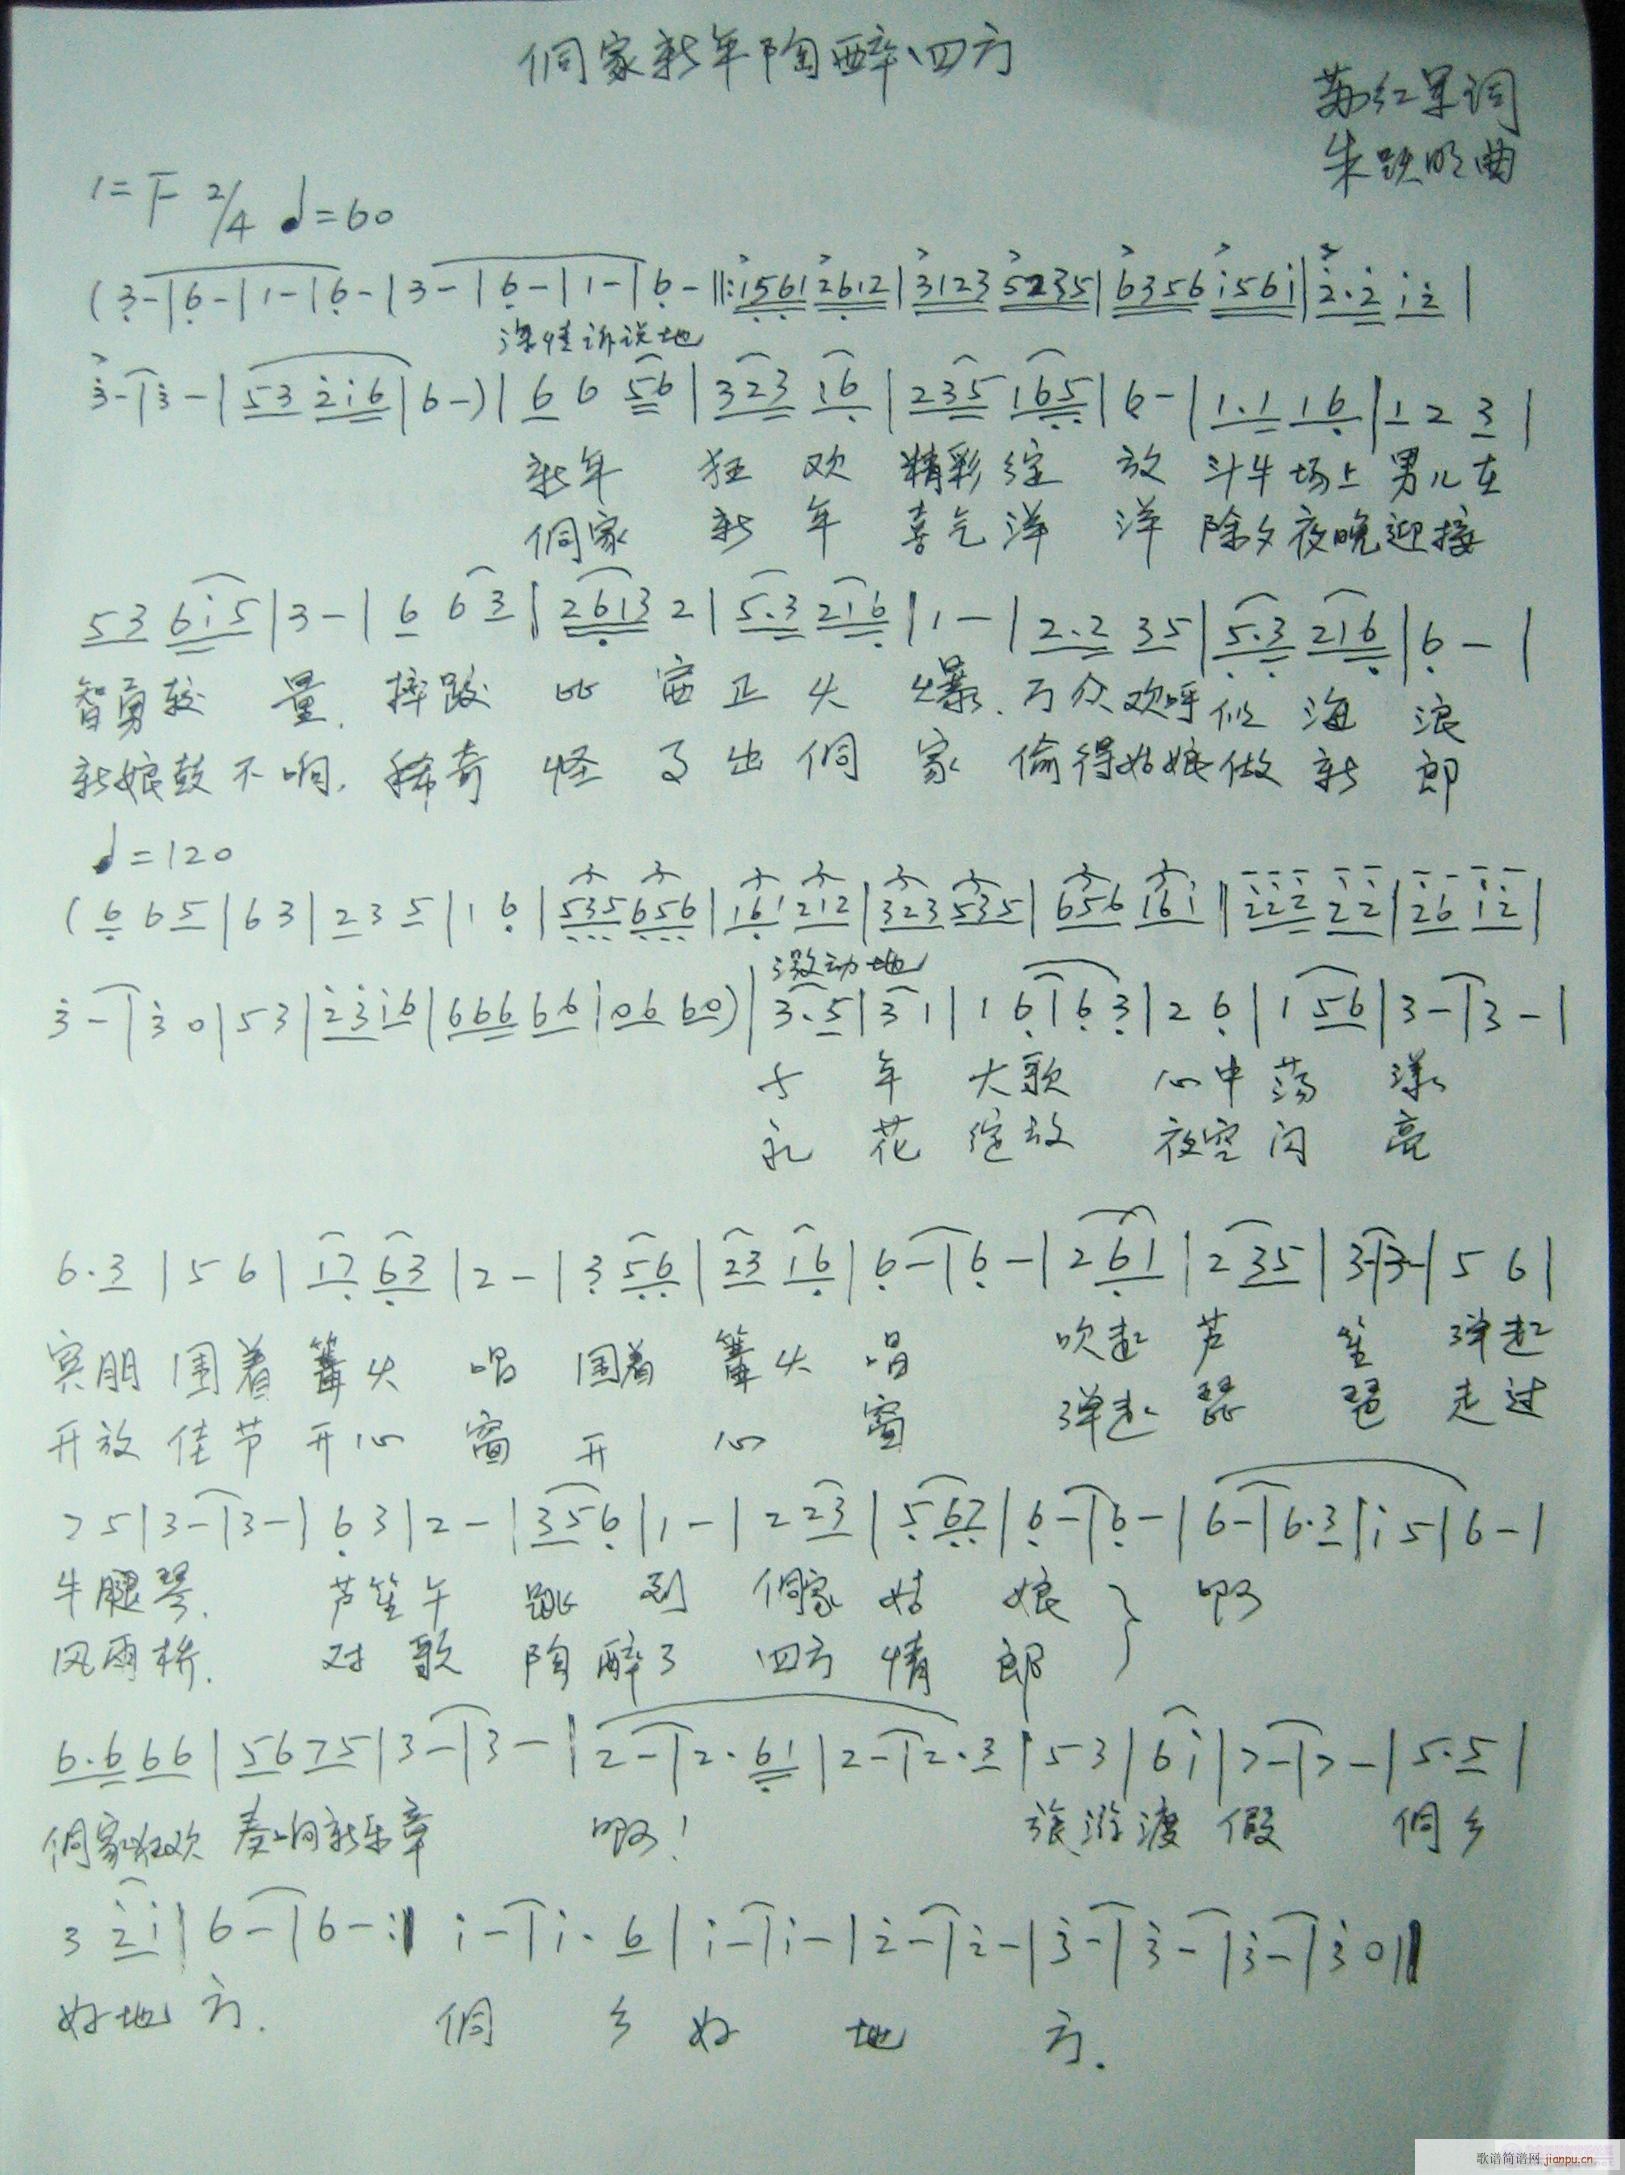 侗家新年陶醉四方
苏红军词
朱跃明曲
1=F 2/4 ♩=60
(3-|6-|1-|6-|3-|6-|1-|6-‖:1561 2612|3123 5235|6356 i56i|2·2 i2|
深情诉说地
3-|3-|53 2i6|6-)|6 6 56|323 16|235 165|6-|1·1 16|1 2 3|
新年 狂 欢 精彩绽 放 斗牛场上 男儿在
侗家 新 年 喜气洋 洋 除夕夜晚迎接
53 6i5|3-|6 6 3|2613 2|5·3 216|1-|2·2 35|5·3 216|6-|
智勇较 量. 摔跤 比 赛正火 爆. 万众欢呼似 海 浪
新娘鼓不响. 稀奇 怪 了出侗 家 偷得姑娘做 新 郎
♩=120
(6 6 5|6 3|2 3 5|1 6|535 656|161 212|323 535|656 i6i‖222 22|26 i2|
激动地
3-|3 0|53|23i6|666 66|06 60)|3·5|3 1|1 6|6 3|2 6|1 56|3-|3-|
千 年 大歌 心中 荡 漾
礼 花 绽放 夜空 闪 亮
6·3|5 6|17 63|2-|3 56|23 16|6-|6-|2 61|2 35|3-|3-|5 6|
宾朋 围着 篝火 唱 围着 篝火 唱 吹起 芦 笙 弹起
开放 佳节 开心 窗 开 心 窗 弹起 琵 琶 走过
7 5|3-|3-|6 3|2-|356|1-|2 23|5 67|6-|6-|6-|6·3|i 5|6-|
牛腿琴. 芦笙午 跳 到 侗家 姑 娘 } 啊
风雨桥. 对歌 陶醉了 四方 情 郎
6·6 66|56 75|3-|3-|2-|2·61|2-|2·3|5 3|6 i|7-|7-|5·5|
侗家狂欢 奏响新乐章 啊! 旅游渡 假 侗乡
3 2i|6-|6-:‖ i-|i·6|i-|i-|2-|2-|3-|3-|3-|3 0‖
好地 方. 侗 乡 好 地 方.
歌谱简谱网 jianpu.cn